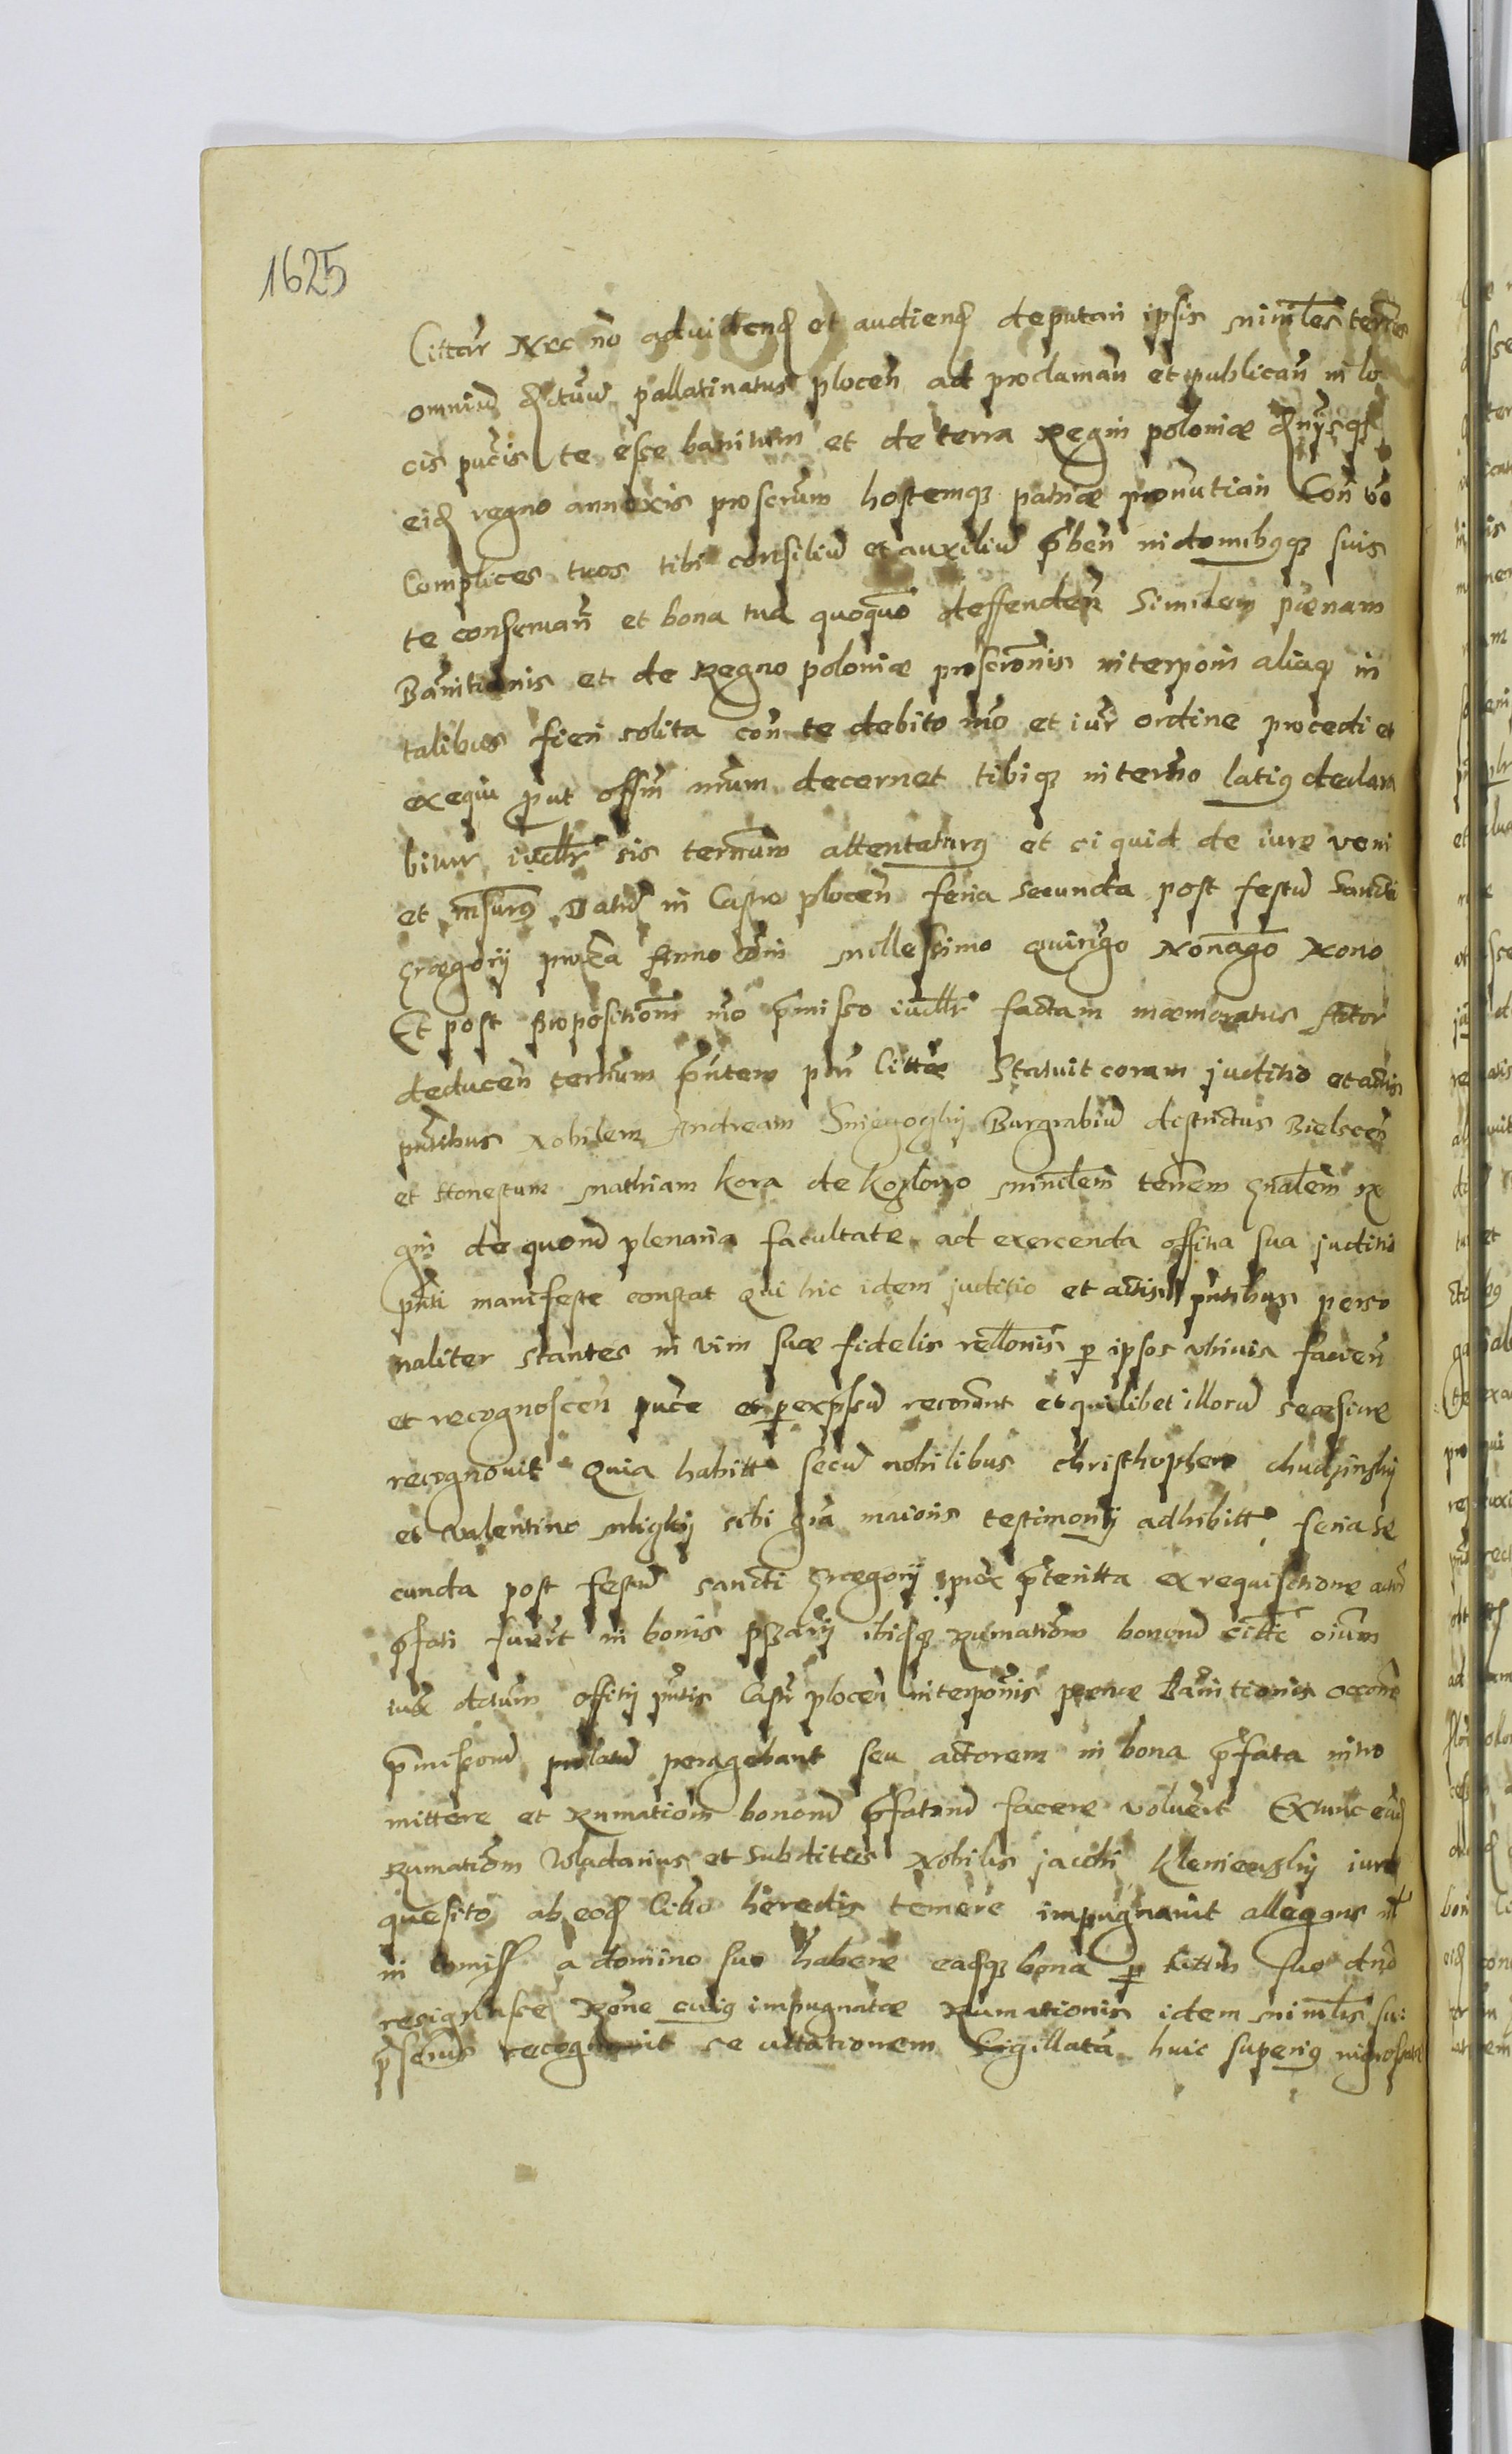 1625
Littar Nec no ad vidend et audiend deputari ipsis ministerales terrestres
omnium dictum pallatinatus plocen ad proclaman et publican in lo
cis pucis te esse banitum et de terra Regni poloniæ
eid regno annexis proscrum hostemq patriæ pronutiari Con vo
Complices tuos tibi consiliu et auxiliu pben in domibusq suis
te conservan et bona tua quoquo deffenden Similem pœnam
Banitionis et de Regno poloniæ proscronis interponi aliaq in
talibus fieri solita con te debito mo et iur ordine procedi et
exequi prut offm nrum decernet tibiq in terno latius declara
bitur iudlr sis ternum attentaturus et ei quid de iure veni
et Datu in Castro plocen feria secunda post festu Sancti
Grægorij proxa Anno dni millessimo quingo Nonago Nono
Et post propositionm mo pmisso iudlr factam mæmoratus Actor
deducen ternum pntem pru littæ Statuit coram juditio et actis
pntibus Nobilem Andream Sniegoczky Burgrabiu districtus Bielscen
et Honestum Mathiam kora de kozlowo ministlem terrem gnalem Re
gni de quoru plenaria facultate ad exercenda offitia sua juditio
pnti manifeste constat Qui hic idem juditio et actis pntibus perso
naliter stantes in vim suæ fidelis rellonis p ipsos utrinis facien
et recognoscen puce et p expssu recorunt et quilibet illoru seorsive
recognovit Quia habitt secu nobilibus Christhophero chudzinsky
et Valentino sibi gra maioris testimonij adhibitt feria se
cunda post festu sancti Grægorij prox pteritta ex requisitione actor
pfati fuert in bonis pszary ibidq Rumationem bonoru omium
iux dctum offitij pntis Castr plocen interponis pœnæ Banitionis occone
pmissoru prolatu peragebant seu actorem in bona pfata intro
mittere et Rumationm bonoru pfatoru facere voluert Extunc eand
Rumationm Wladarius et subdittis Nobilis jacobi iure
quesito ab eod heredis temere impugnavit allegans
in comiss a domino suo habere eadsq bona p suo dno
resignasse Rone cuius impugnatæ Rumationis idem ministlis su:
pscrius recognovit se citationem Sigillata huic superius